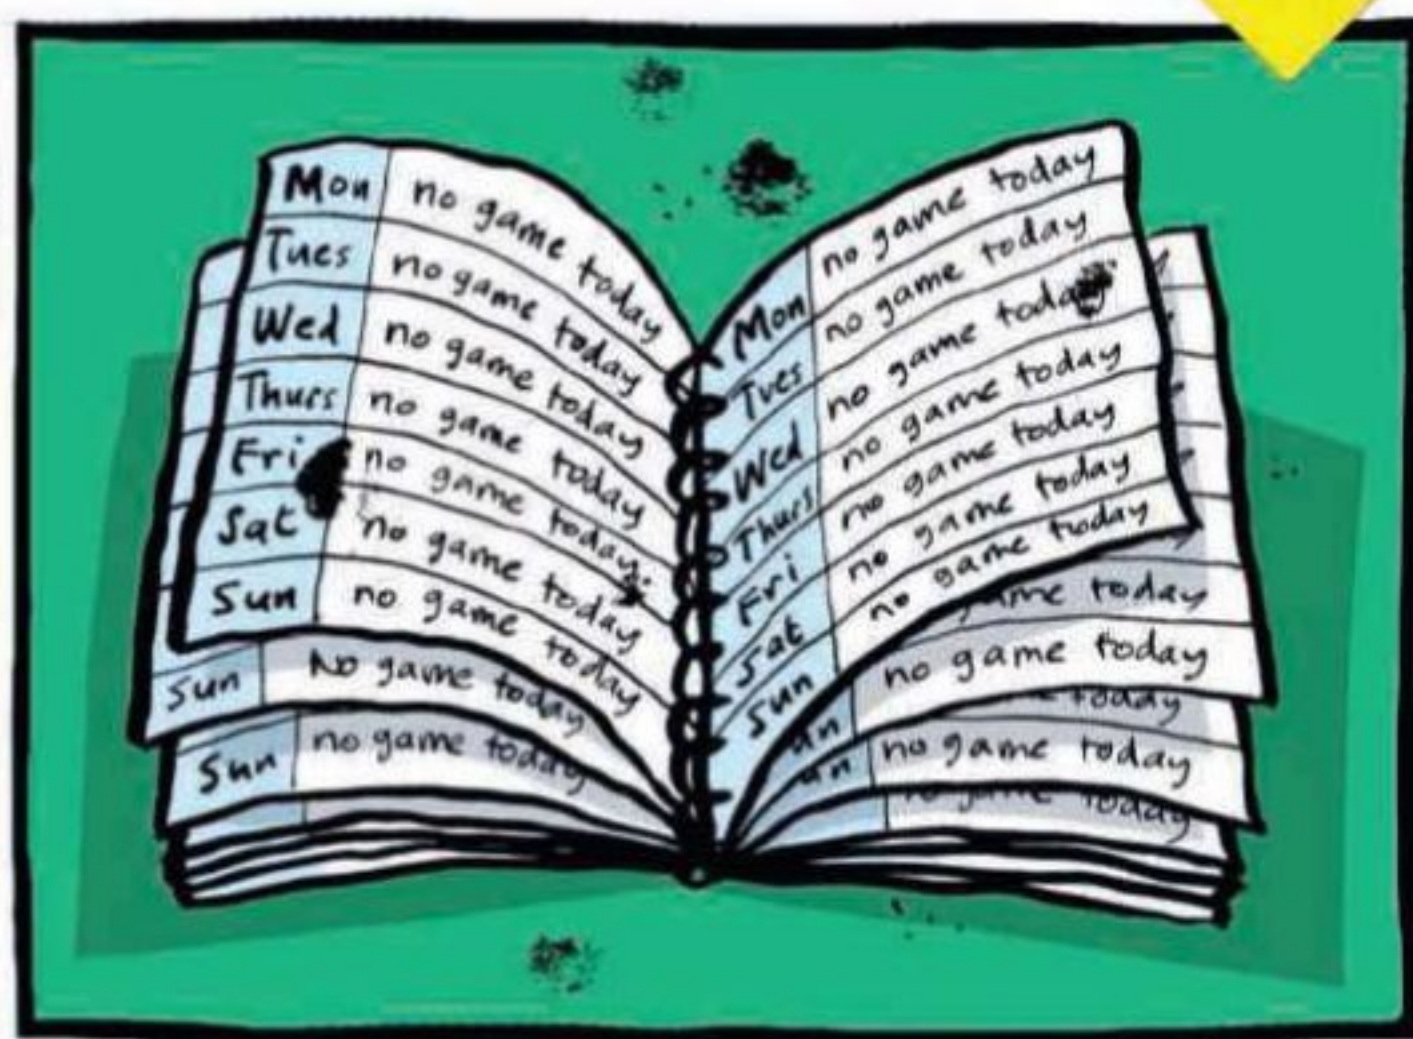 Mon no game today
Tues no game today
Wed no game today
Thurs no game today
Fri no game today.
Sat no game today
Sun no game today
Sun No game today
Sun no game today
Mon no game today
Tues no game today
Wed no game today
Thurs no game today
Fri no game today
Sat no game today
Sun no game today
today
no game today
today
no game today
no game today